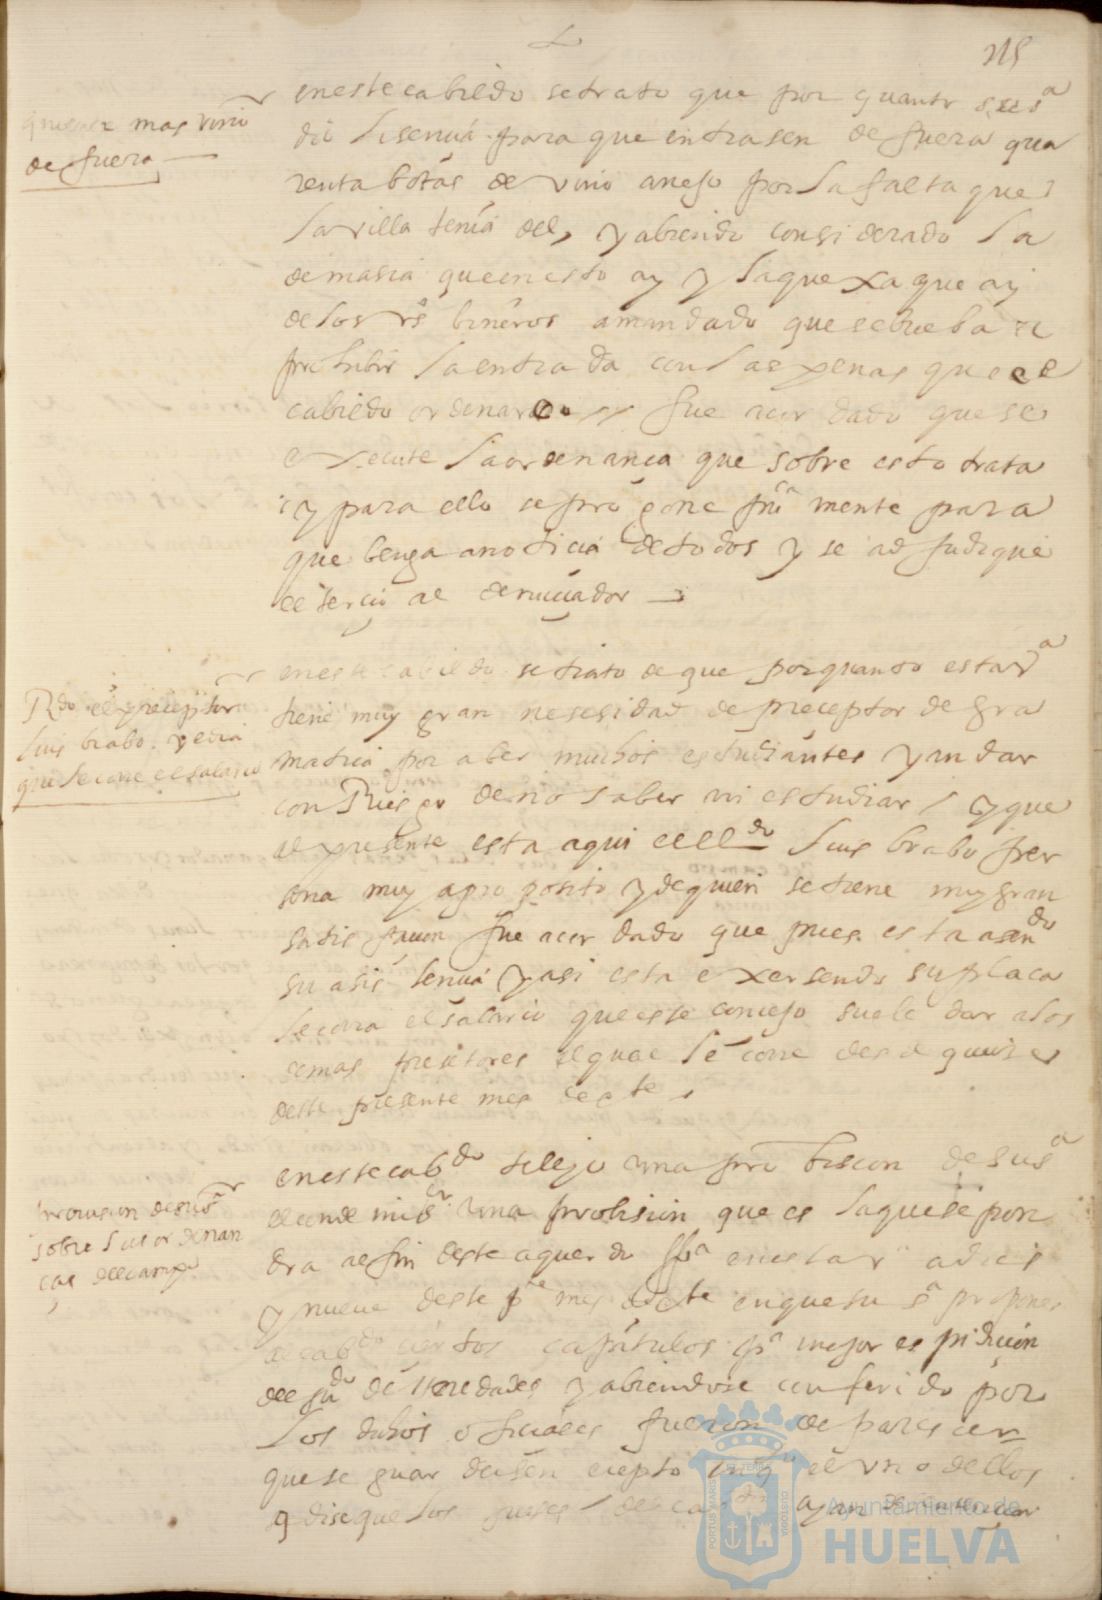 115
que no entre mas vino
de fuera
en este cabildo se trato que por quanto su sª
dio lisencia para que entrasen de fuera qua
renta botas de vino anejo por la falta que
la villa tenia del, y abiendo considerado la
demasia que en esto ay y la quexa que ay
de los vºs bineros a mandado que se buelba a
prohibir la entrada con las penas que el
cabildo ordenare y fue acordado que se
execute la ordenança que sobre esto trata
y para ello se pregone pruª mente para
que benga a noticia de todos y se adjudique
el tercio al denunciador
Rdo el preceptor
luis brabo y
que le corre el salario
en este cabildo se trato de que por quanto esta vª
tiene muy gran nesesidad de preceptor de gra
matica por aber muchos estudiantes y andar
con Riesgo de no saber ni estudiar y que
al presente esta aqui el lldo luis brabo per
sona muy a proposito y de quien se tiene muy gran
satisfaciom fue acordado que pues esta asendo
su asistencia y asi esta exersendo su plaça
le corra el salario que este concejo suele dar a los
demas presetores el qual le corre desde quinze
deste presente mes de
provision de su sª
sobre las ordenan
ças del campo
en este cabdo se leyo una probision de su sª
el conde mi sr una probision que es la que se pon
dra al fin deste aquerdo ffª en esta vª a dies
y nueve deste pte mes de en que su sª propone
al cabdo ciertos capitulos pª mejor espidicion
del judo de heredades y abiendose conferido por
los dichos oficiales fueron de parescer
que se guardasen eçepto el uno dellos
q dise que los juezes del campo ayan de
PORTUS MARIS ET TERRE CUSTODIA
Ayuntamiento de
HUELVA